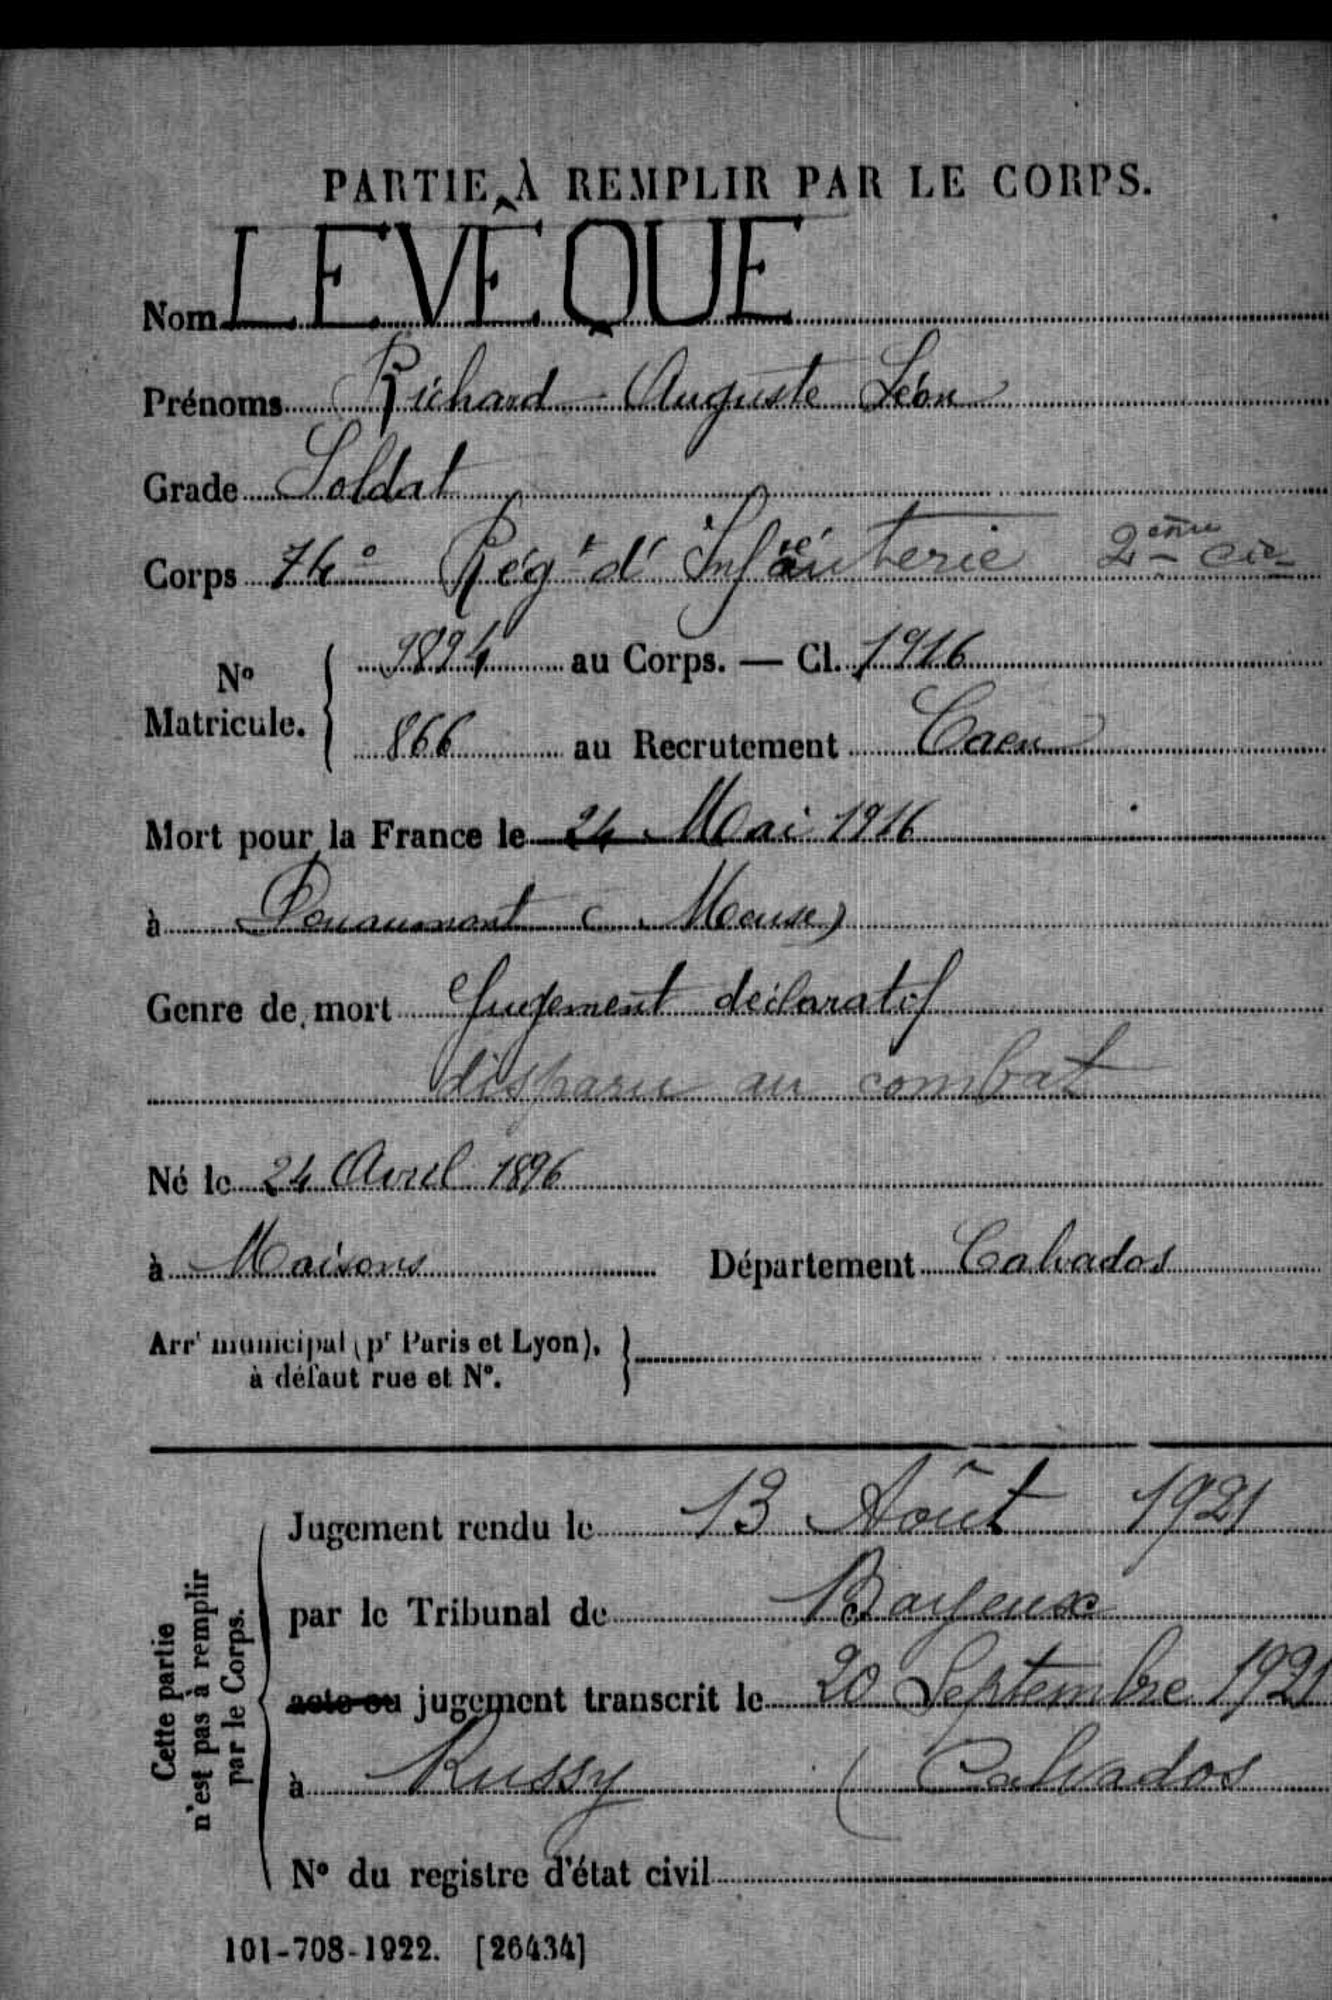 PARTIE À REMPLIR PAR LE CORPS.
Nom LEVÊQUE
Prénoms Richard Auguste Léon
Grade Soldat
Corps 74e Régt d'Infanterie 2ème Cie
No Matricule. { 9894 au Corps. — Cl. 1916
866 au Recrutement Caen
Mort pour la France le 24 Mai 1916
à Douaumont (Meuse)
Genre de mort Jugement déclaratif
disparu au combat
Né le 24 Avril 1896
à Maisons Département Calvados
Arrt municipal (pr Paris et Lyon), }
à défaut rue et N°.
Cette partie
n'est pas à remplir
par le Corps.
Jugement rendu le 13 Août 1921
par le Tribunal de Bayeux
acte ou jugement transcrit le 20 Septembre 1921
à Russy (Calvados
N° du registre d'état civil
101-708-1922. [26434]